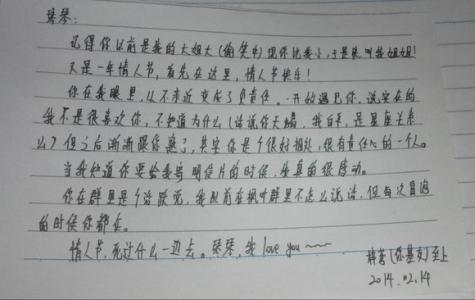 琴琴:
记得你以前是我的大姐大(偷笑中)现你比我小,于是就叫我姐姐!
又是一年情人节,首先在这里,情人节快乐!
你在我眼里,从不亲近变成了负责任。一开始遇见你,说实在的
我不是很喜欢你,不知道为什么(话说你天蝎,我白羊,是星座关系
么)但之后渐渐跟你熟了,其实你是个很好相处,很有责任心的一个人。
当我知道你要给我写明信片的时候,我真的很感动。
你在群里是个活跃党,我以前在枫叶群里不怎么说话,但每次冒泡
的时候你都在。
情人节,死过什么一边去。琴琴,我love you~~~
(你基友)至上
2014.02.14